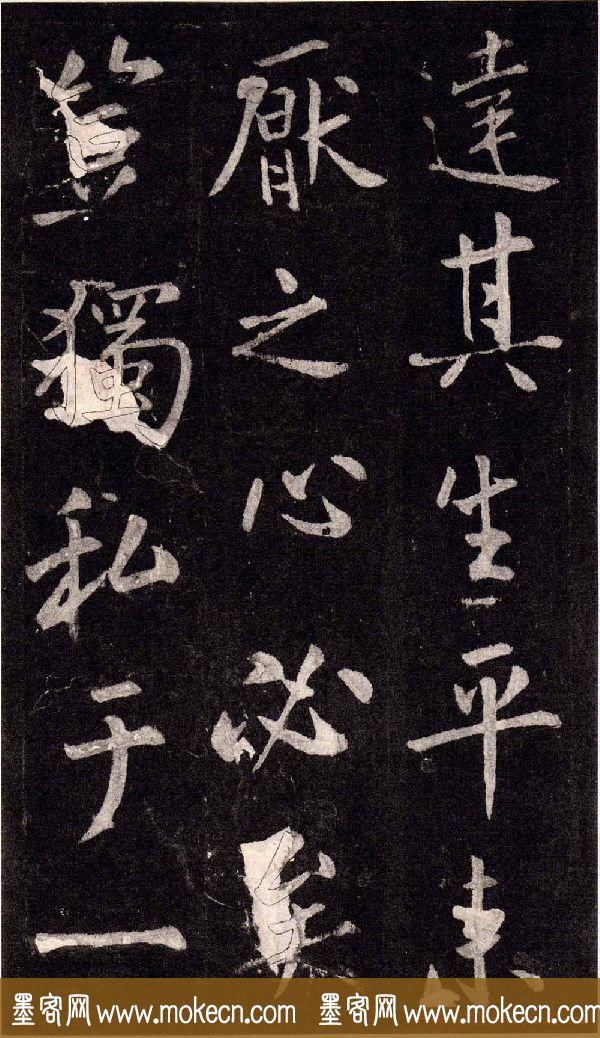 達其生平未
厭之心必矣
豈獨私于一
墨客网 www.mokecn.com 墨客网 www.mokecn.com